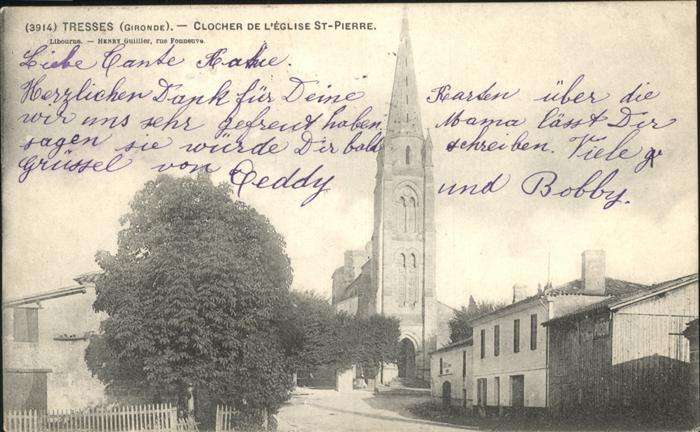 (3914) TRESSES (GIRONDE). — CLOCHER DE L'ÉGLISE ST-PIERRE.
Libourne. — HENRY Guillier, rue Fonneuve.
Liebe Tante Kathe.
Herzlichen Dank für Deine Karten über die
wir uns sehr gefreut haben Mama lässt Dir
sagen sie würde Dir bald schreiben. Viele
grüssel von Teddy und Bobby.